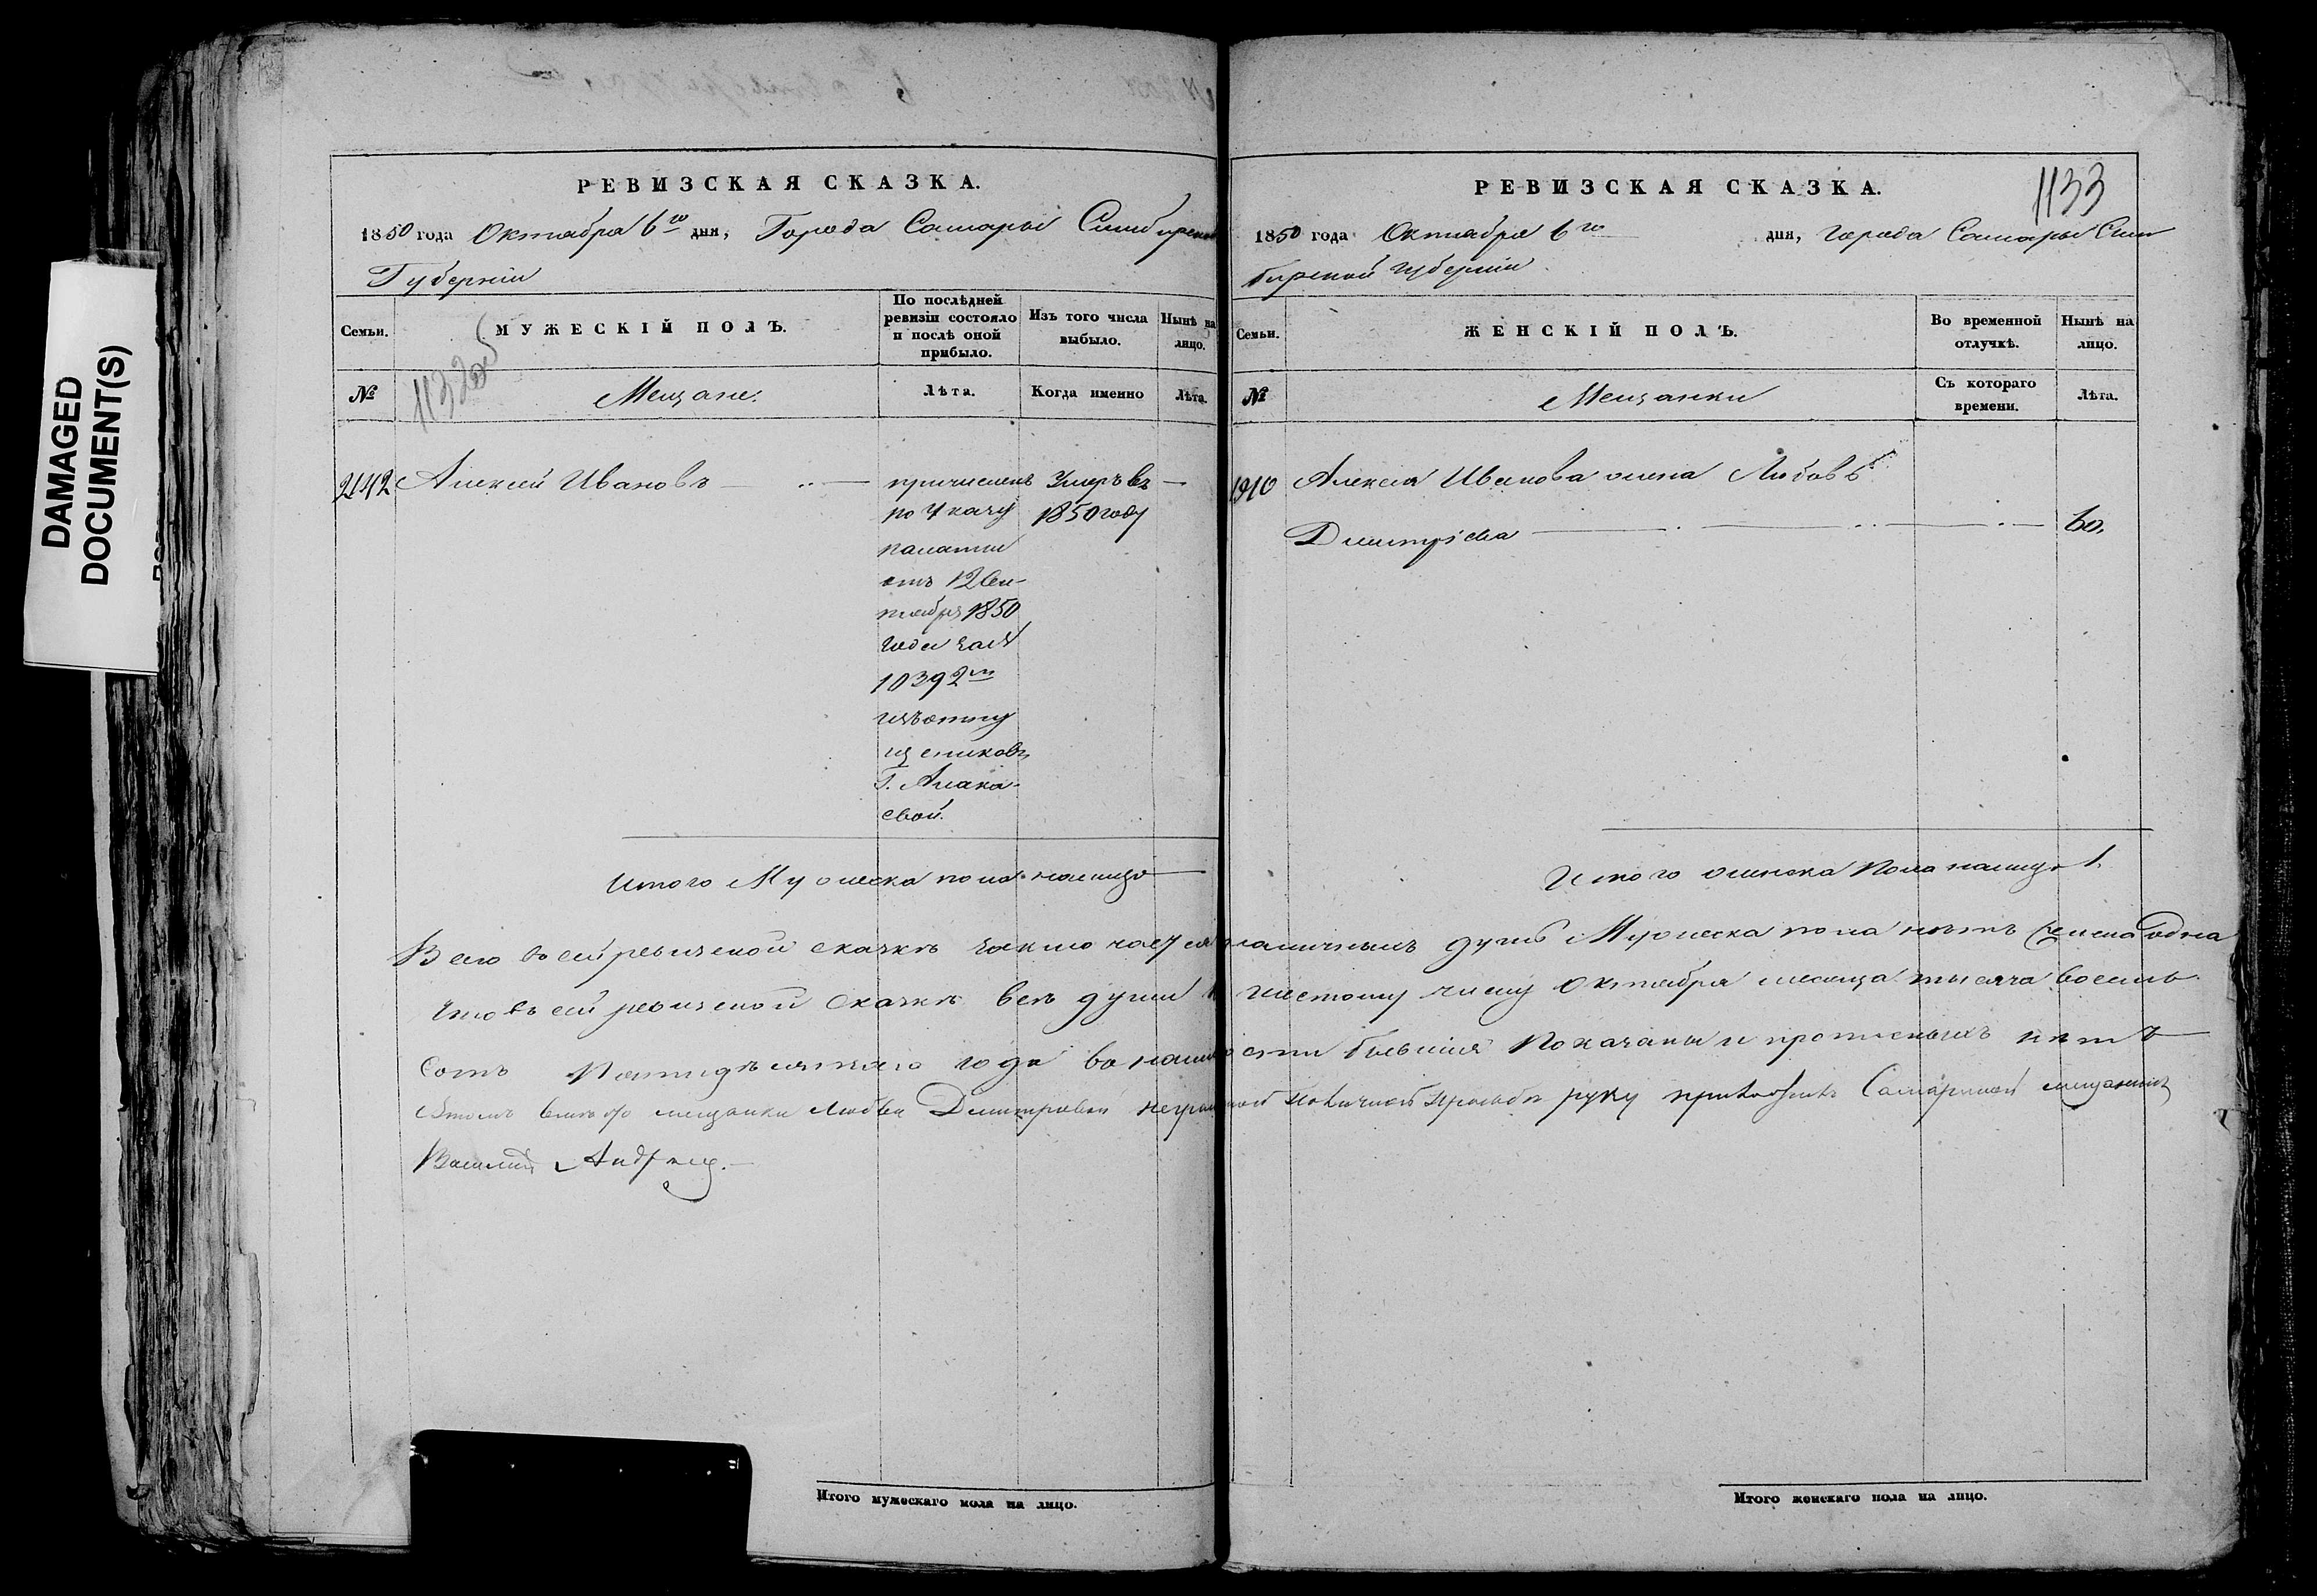 DAMAGED
DOCUMENT(S)
РЕВИЗСКАЯ СКАЗКА.
1850 года Октября 6го дня, Города Самары Симбирской
Губернiи
Семьи.
МУЖЕСКІЙ ПОЛЪ.
По послѣдней
ревизіи состояло
и послѣ оной
прибыло.
Изъ того числа
выбыло.
Нынѣ на
лицо.
№
Мещане.
Лѣта.
Когда именно
Лѣта.
2142 Алексей Ивановъ
причисленъ
по Указу
палаты
отъ 12 Сен-
тября 1850
года за №
10392м
изъ отпу
щенниковъ
Г. Алака-
евой.
Умеръ въ
1850 году
Итого Мужеска пола налицо
РЕВИЗСКАЯ СКАЗКА.
1133
1850 года Октября 6го дня, Города Самары Сим
бирской Губернiи
Семьи.
ЖЕНСКІЙ ПОЛЪ.
Во временной
отлучкѣ.
Нынѣ на
лицо.
№
Мещанки
Съ котораго
времени.
Лѣта.
1910 Алексея Иванова жена Любовь
Дмитрiева 60,
Итого женска Пола налицо 1.
Всего въ сей ревизской сказкѣ наличныхъ душъ Мужеска пола нѣтъ Женска одна
Что въ сей ревизской сказкѣ всѣ души к шестому числу Октября месяца тысяча восемь
сотъ Пятидѣсятаго года въ наличности бывшiя Показаны и прописныхъ нѣтъ
Въ томъ вместо мещанки Любви Дмитрiевой неграмотной по личной прозьбѣ руку приложилъ Самарской мещанинъ
Василий Андреев.
Итого мужескаго пола на лицо.
Итого женскаго пола на лицо.